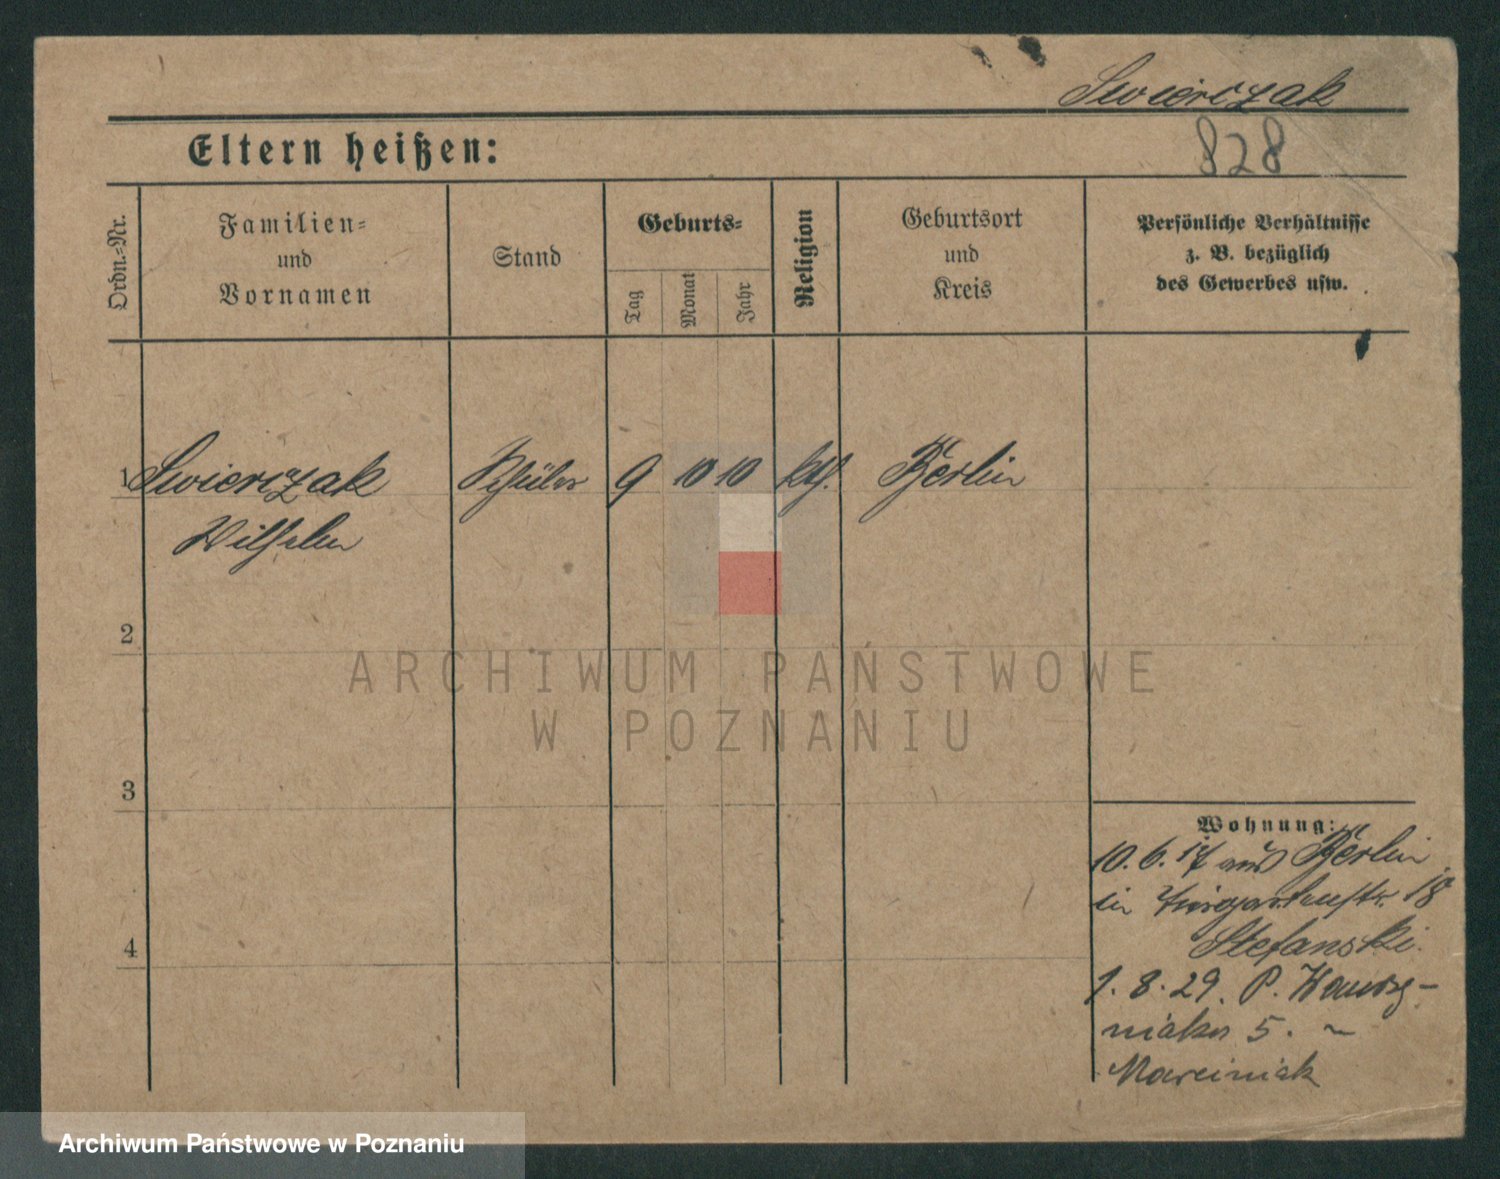 Swierczak
Eltern heißen:
828
Ordn.-Nr.
Familien-
und
Vornamen
Stand
Geburts-
Tag
Monat
Jahr
Religion
Geburtsort
und
Kreis
Persönliche Verhältnisse
z. B. bezüglich
des Gewerbes usw.
1 Swierczak Schüler 9 10 10 kth. Berlin
Wilhelm
2
3
4
Wohnung:
10. 6. 17 aus Berlin
in Tiergartenstr. 18
Stefanski.
1. 8. 29. P.
5. ~
Marciniak
ARCHIWUM PAŃSTWOWE
W POZNANIU
Archiwum Państwowe w Poznaniu